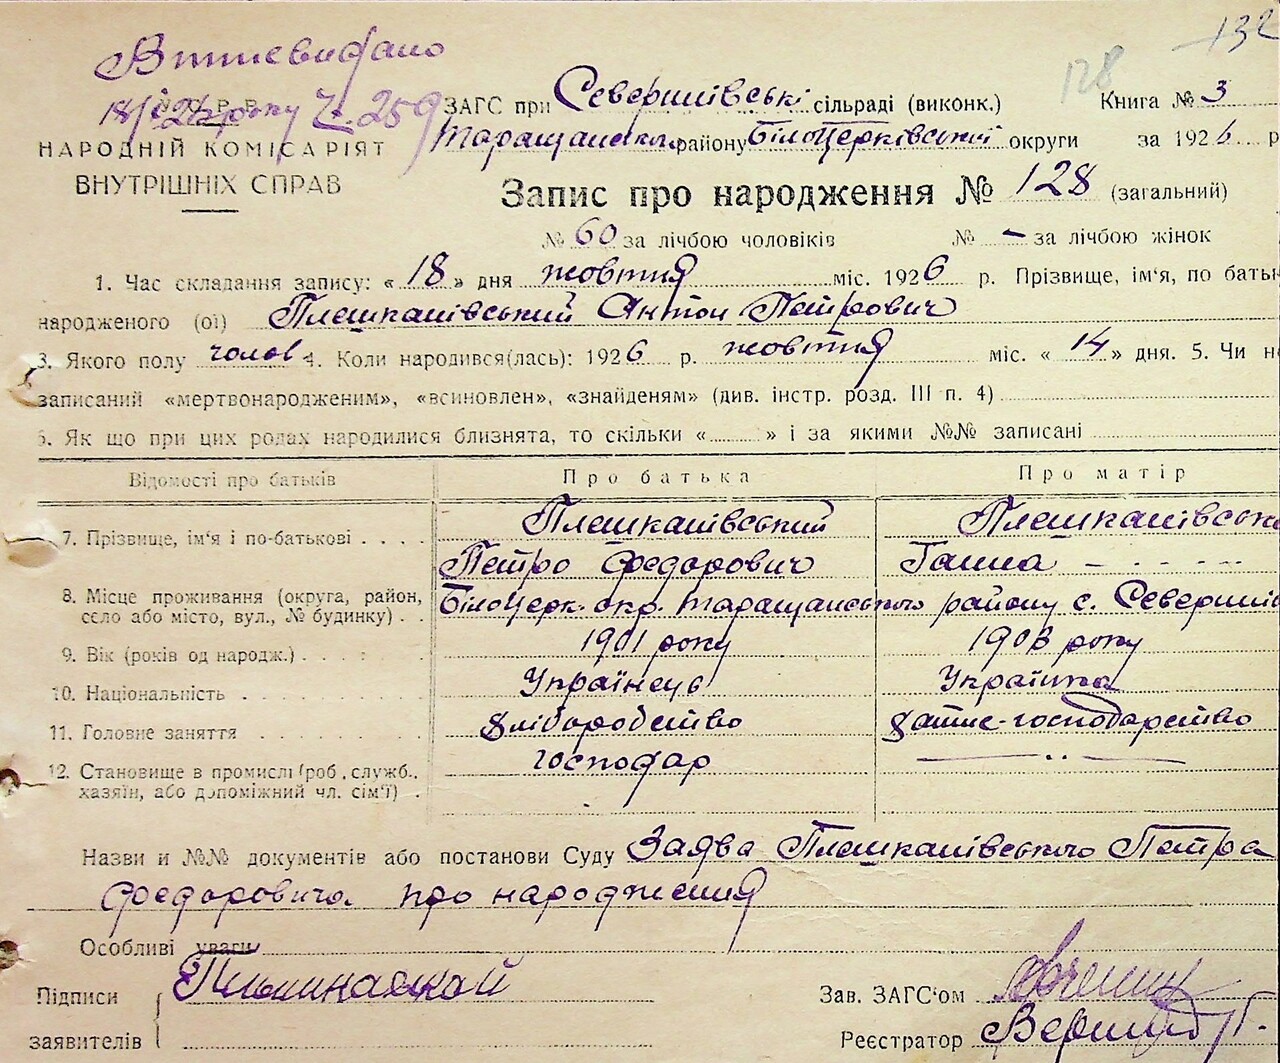 132
128
Н. К. В. С.
НАРОДНІЙ КОМІСАРІЯТ
ВНУТРІШНІХ СПРАВ
ЗАГС при сільраді (виконк.)
Таращанськ. району Білоцерківської округи
Книга № 3
за 1926 р
Запис про народження № 128 (загальний)
№ 60 за лічбою чоловіків № – за лічбою жінок
1. Час складання запису: « 18 » дня жовтня міс. 1926 р. Прізвище, ім'я, по бать
народженого (ої) Плешканівський Антон Петрович
3. Якого полу чолов 4. Коли народився(лась): 1926 р. жовтня міс. « 14 » дня. 5. Чи не
записаний «мертвонародженим», «всиновлен», «знайденям» (див. інстр. розд. III п. 4)
6. Як що при цих родах народилися близнята, то скільки « » і за якими №№ записані
Відомості про батьків Про батька Про матір
7. Прізвище, ім'я і по-батькові Плешканівський Петро Федорович Плешканівськ Ганна
8. Місце проживання (округа, район, село або місто, вул., № будинку) Білоцерк. окр. Таращанського району с.
9. Вік (років од народж.) 1901 року 1903 року
10. Національність Українець Українка
11. Головне заняття хліборобство хатнє-господарство
12. Становище в промислі (роб., служб., хазяїн, або допоміжний чл. сім'ї) господар
Назви и №№ документів або постанови Суду Заява Плешканівського Петра
Федоровича про народження
Особливі уваги
Підписи
заявителів
Зав. ЗАГС'ом
Реєстратор